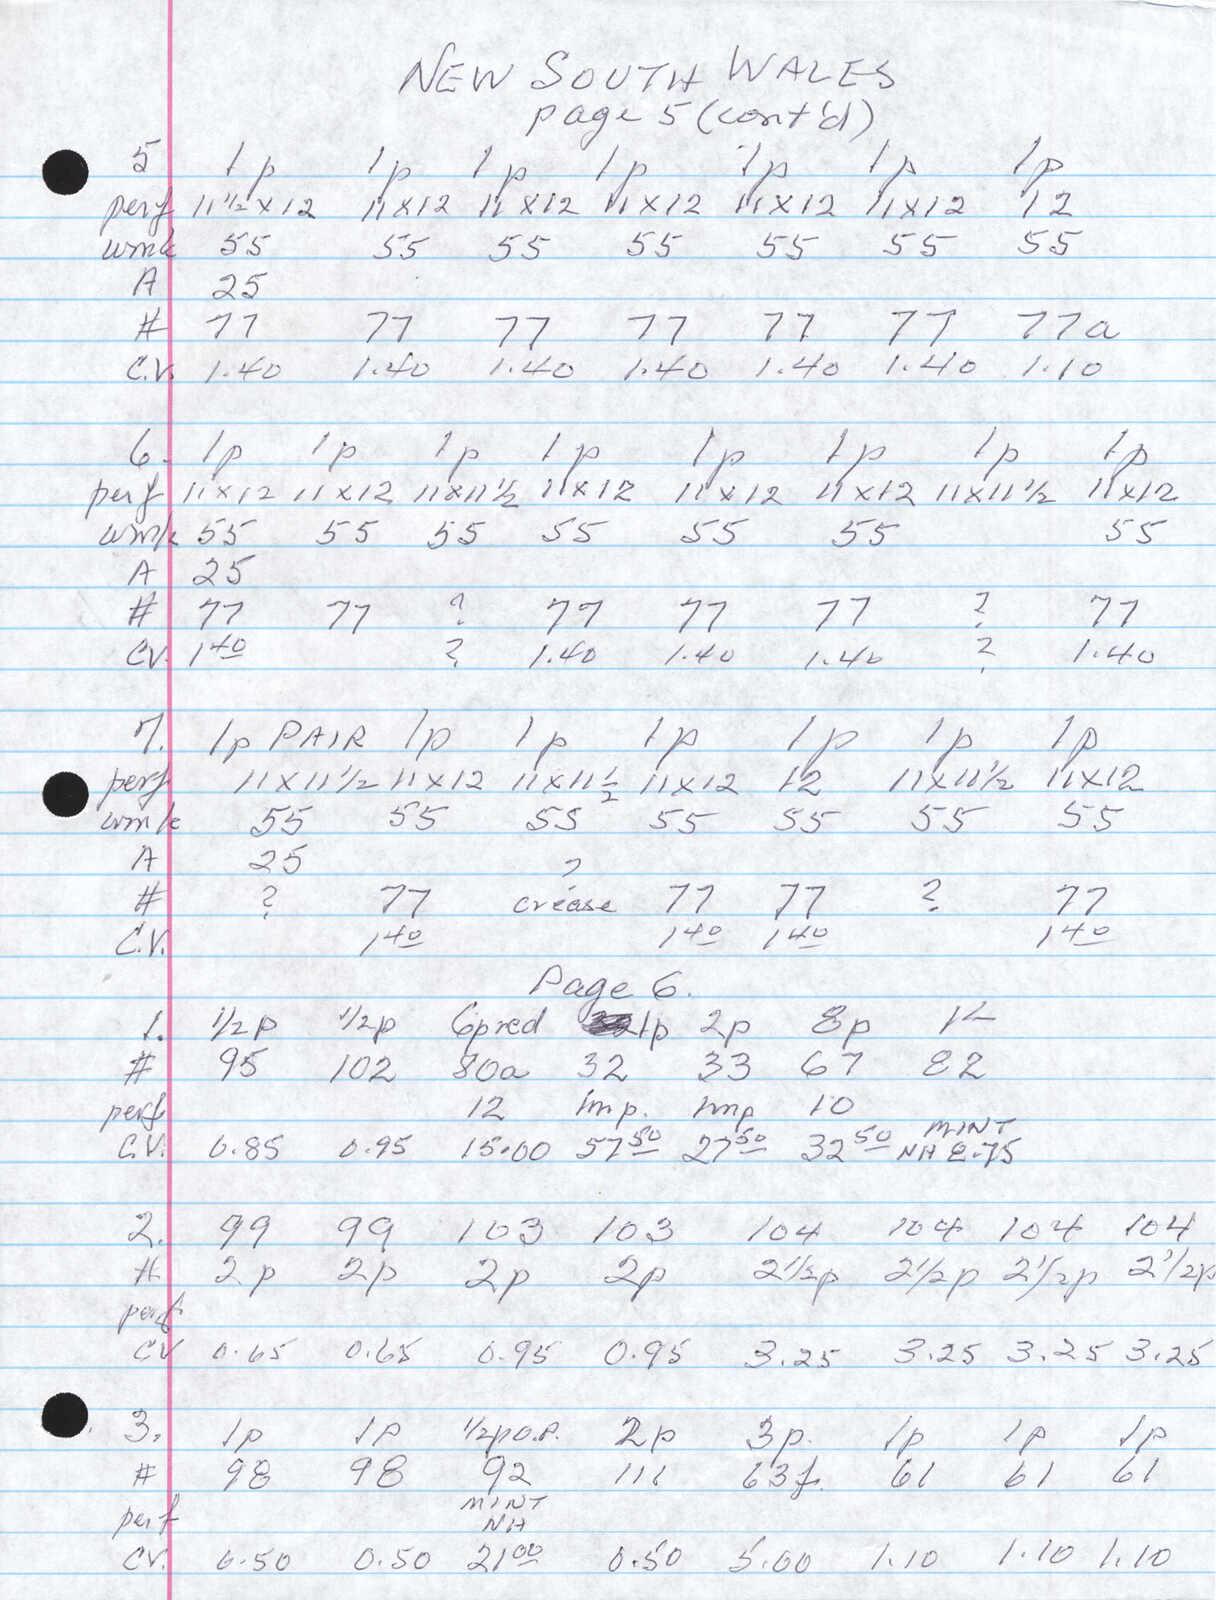 NEW SOUTH WALES
page 5 (cont'd)
5 1p 1p 1p 1p 1p 1p 1p
perf 11 1/2 x 12 11 x 12 11 x 12 11 x 12 11 x 12 11 x 12 12
wmk 55 55 55 55 55 55 55
A 25
# 77 77 77 77 77 77 77a
C.V. 1.40 1.40 1.40 1.40 1.40 1.40 1.10
6. 1p 1p 1p 1p 1p 1p 1p 1p
perf 11 x 12 11 x 12 11 x 11 1/2 11 x 12 11 x 12 11 x 12 11 x 11 1/2 11 x 12
wmk 55 55 55 55 55 55 55
A 25
# 77 77 ? 77 77 77 ? 77
CV. 1 40 ? 1.40 1.40 1.40 ? 1.40
7. 1p PAIR 1p 1p 1p 1p 1p 1p
perf 11 x 11 1/2 11 x 12 11 x 11 1/2 11 x 12 12 11 x 11 1/2 11 x 12
wmk 55 55 55 55 55 55 55
A 25 ?
# ? 77 crease 77 77 ? 77
C.V. 1 40 1 40 1 40 1 40
Page 6.
1. 1/2p 1/2p 6p red 1p 2p 8p 1/-
# 95 102 80a 32 33 67 82
perf 12 Imp. Imp 10
C.V. 0.85 0.95 15.00 57 50 27 50 32 50 MINT NH 8.75
2. 99 99 103 103 104 104 104 104
# 2p 2p 2p 2p 2 1/2p 2 1/2p 2 1/2p 2 1/2p
perf
CV 0.65 0.65 0.95 0.95 3.25 3.25 3.25 3.25
3. 1p 1p 1/2p O.P. 2p 3p. 1p 1p 1p
# 98 98 92 111 63f. 61 61 61
perf MINT NH
CV. 0.50 0.50 21 00 0.50 5.00 1.10 1.10 1.10